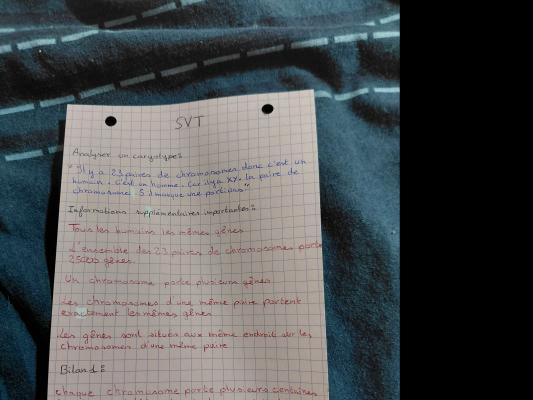 SVT
Analyser un caryotype:
"Il y a 23 paires de chromosomes donc c'est un
humain. C'est un homme. Car il y a XY. La paire de
chromosome 5 manque une portions"
Informations supplémentaires importantes:
Tous les humains les mêmes gênes
L'ensemble des 23 paires de chromosomes porte
25000 gênes.
Un chromosome porte plusieurs gênes
Les chromosomes d'une même paire portent
exactement les mêmes gênes
Les gênes sont situés aux même endroit sur les
chromosomes d'une même paire
Bilan
chaque chromosome porte plusieurs centaines